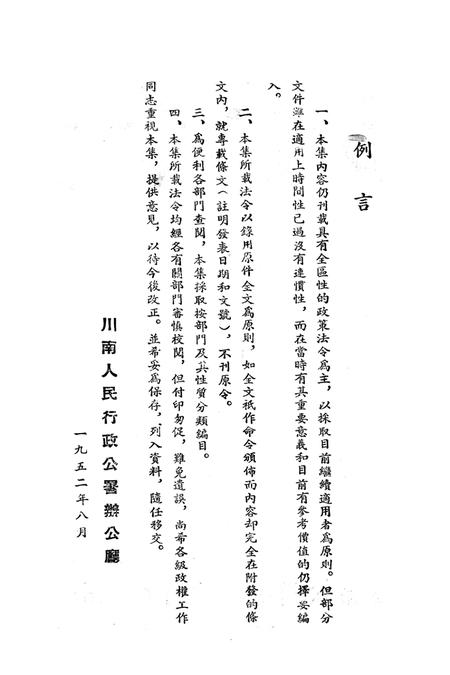 例言
一、本集內容仍刊載具有全區性的政策法令爲主，以採取目前繼續適用者爲原則。但部分
文件雖在適用上時間性已過沒有連慣性，而在當時有其重要意義和目前有參考價值的仍擇妥編
入。
二、本集所載法令以錄用原件全文爲原則，如全文祇作命令頒佈而內容却完全在附發的條
文內，就專載條文（註明發表日期和文號），不刊原令。
三、爲便利各部門查閱，本集採取按部門及其性質分類編目。
四、本集所載法令均經各有關部門審慎校閱，但付印匆促，難免遺誤，尚希各級政權工作
同志重視本集，提供意見，以待今後改正。並希妥爲保存，列入資料，隨任移交。
川南人民行政公署辦公廳
一九五二年八月